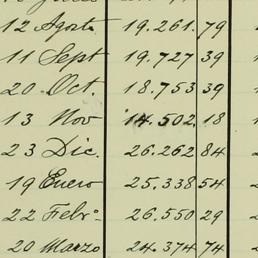 12 Agosto 19.261.79
11 Sept 19.727 39
20 Oct. 18.753 39
13 Nov 14.502 18
23 Dic. 26.262 84
19 Enero 25.338 54
22 Febrº 26.550 29
20 Marzo 24.374 74